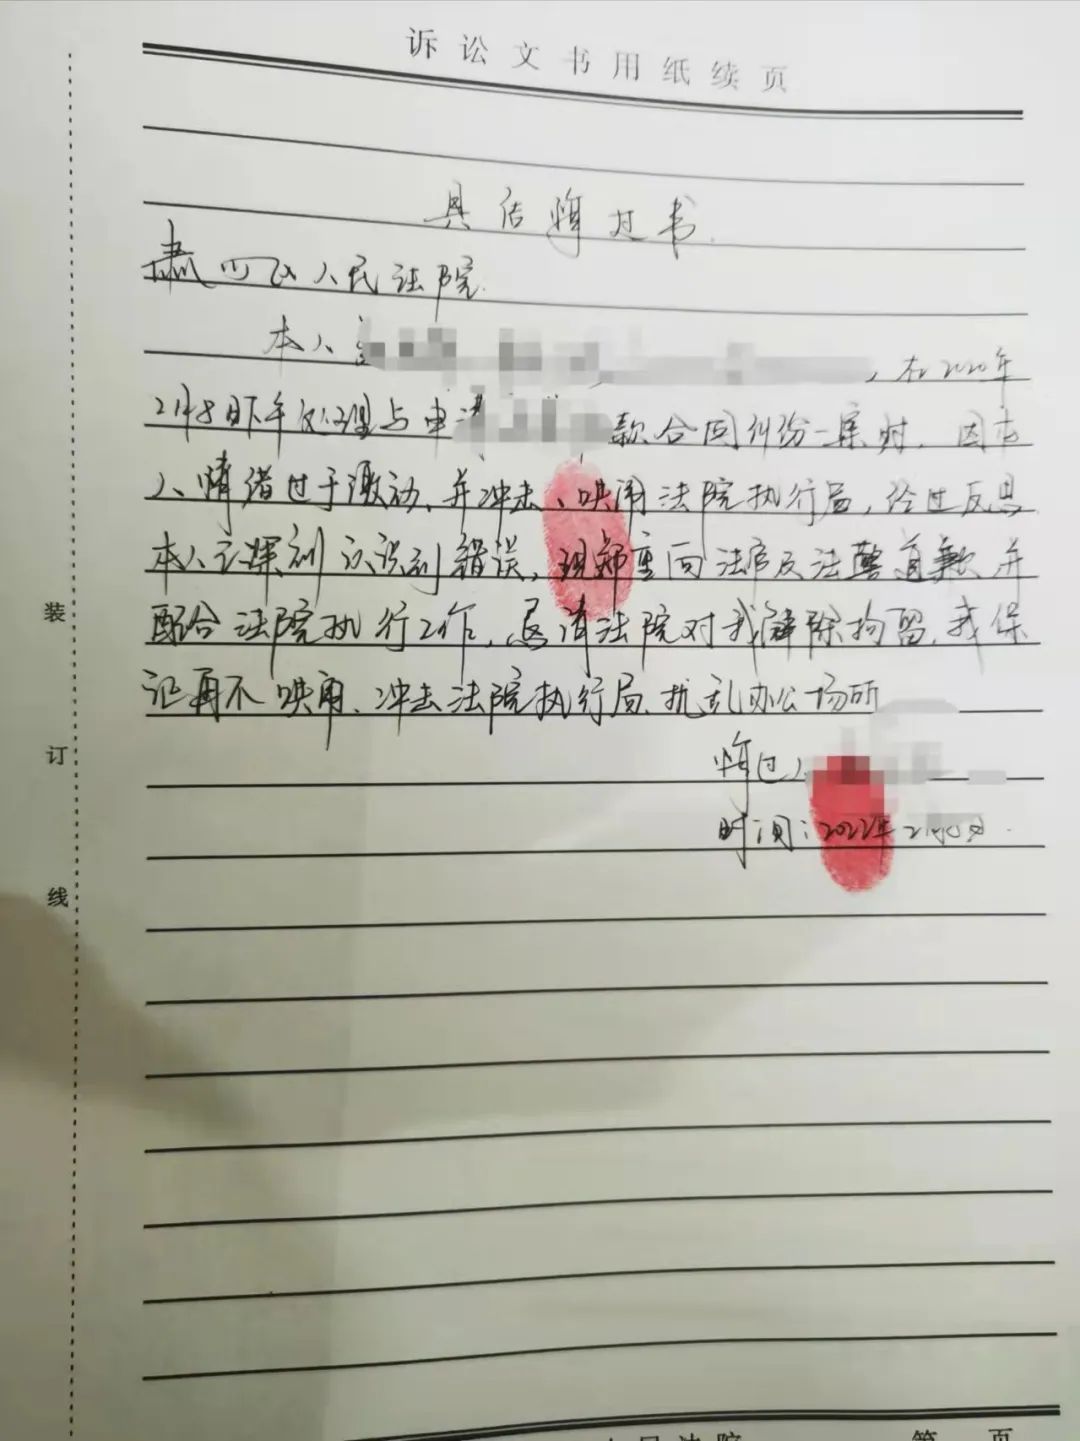 诉讼文书用纸续页
具结悔过书.
肃州区人民法院.
本人
,在2020年
2月8日下午处理与申
款合同纠纷一案时,因本
人情绪过于激动、并冲击、哄闹法院执行局,经过反思
本人已深刻认识到错误,现郑重向法官及法警道歉并
配合法院执行工作,恳请法院对我解除拘留,我保
证再不哄闹、冲击法院执行局、扰乱办公场所
悔过人
时间:2022年2月
装
订
线
人民法院
第 页